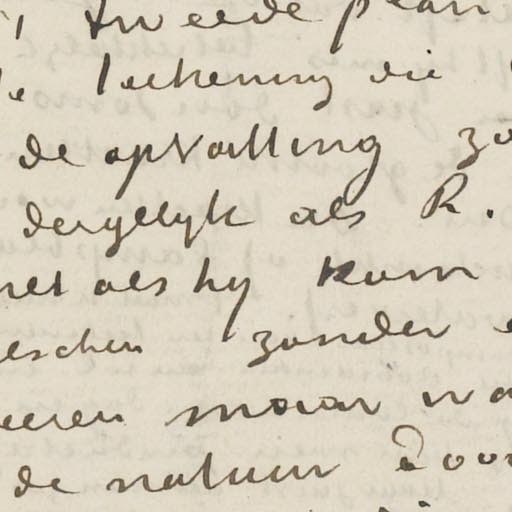 tweede plan
teekening die
de opvatting zo
dergelyk als R.
net als hy kom
zonder
eeren maar na
de natuur door